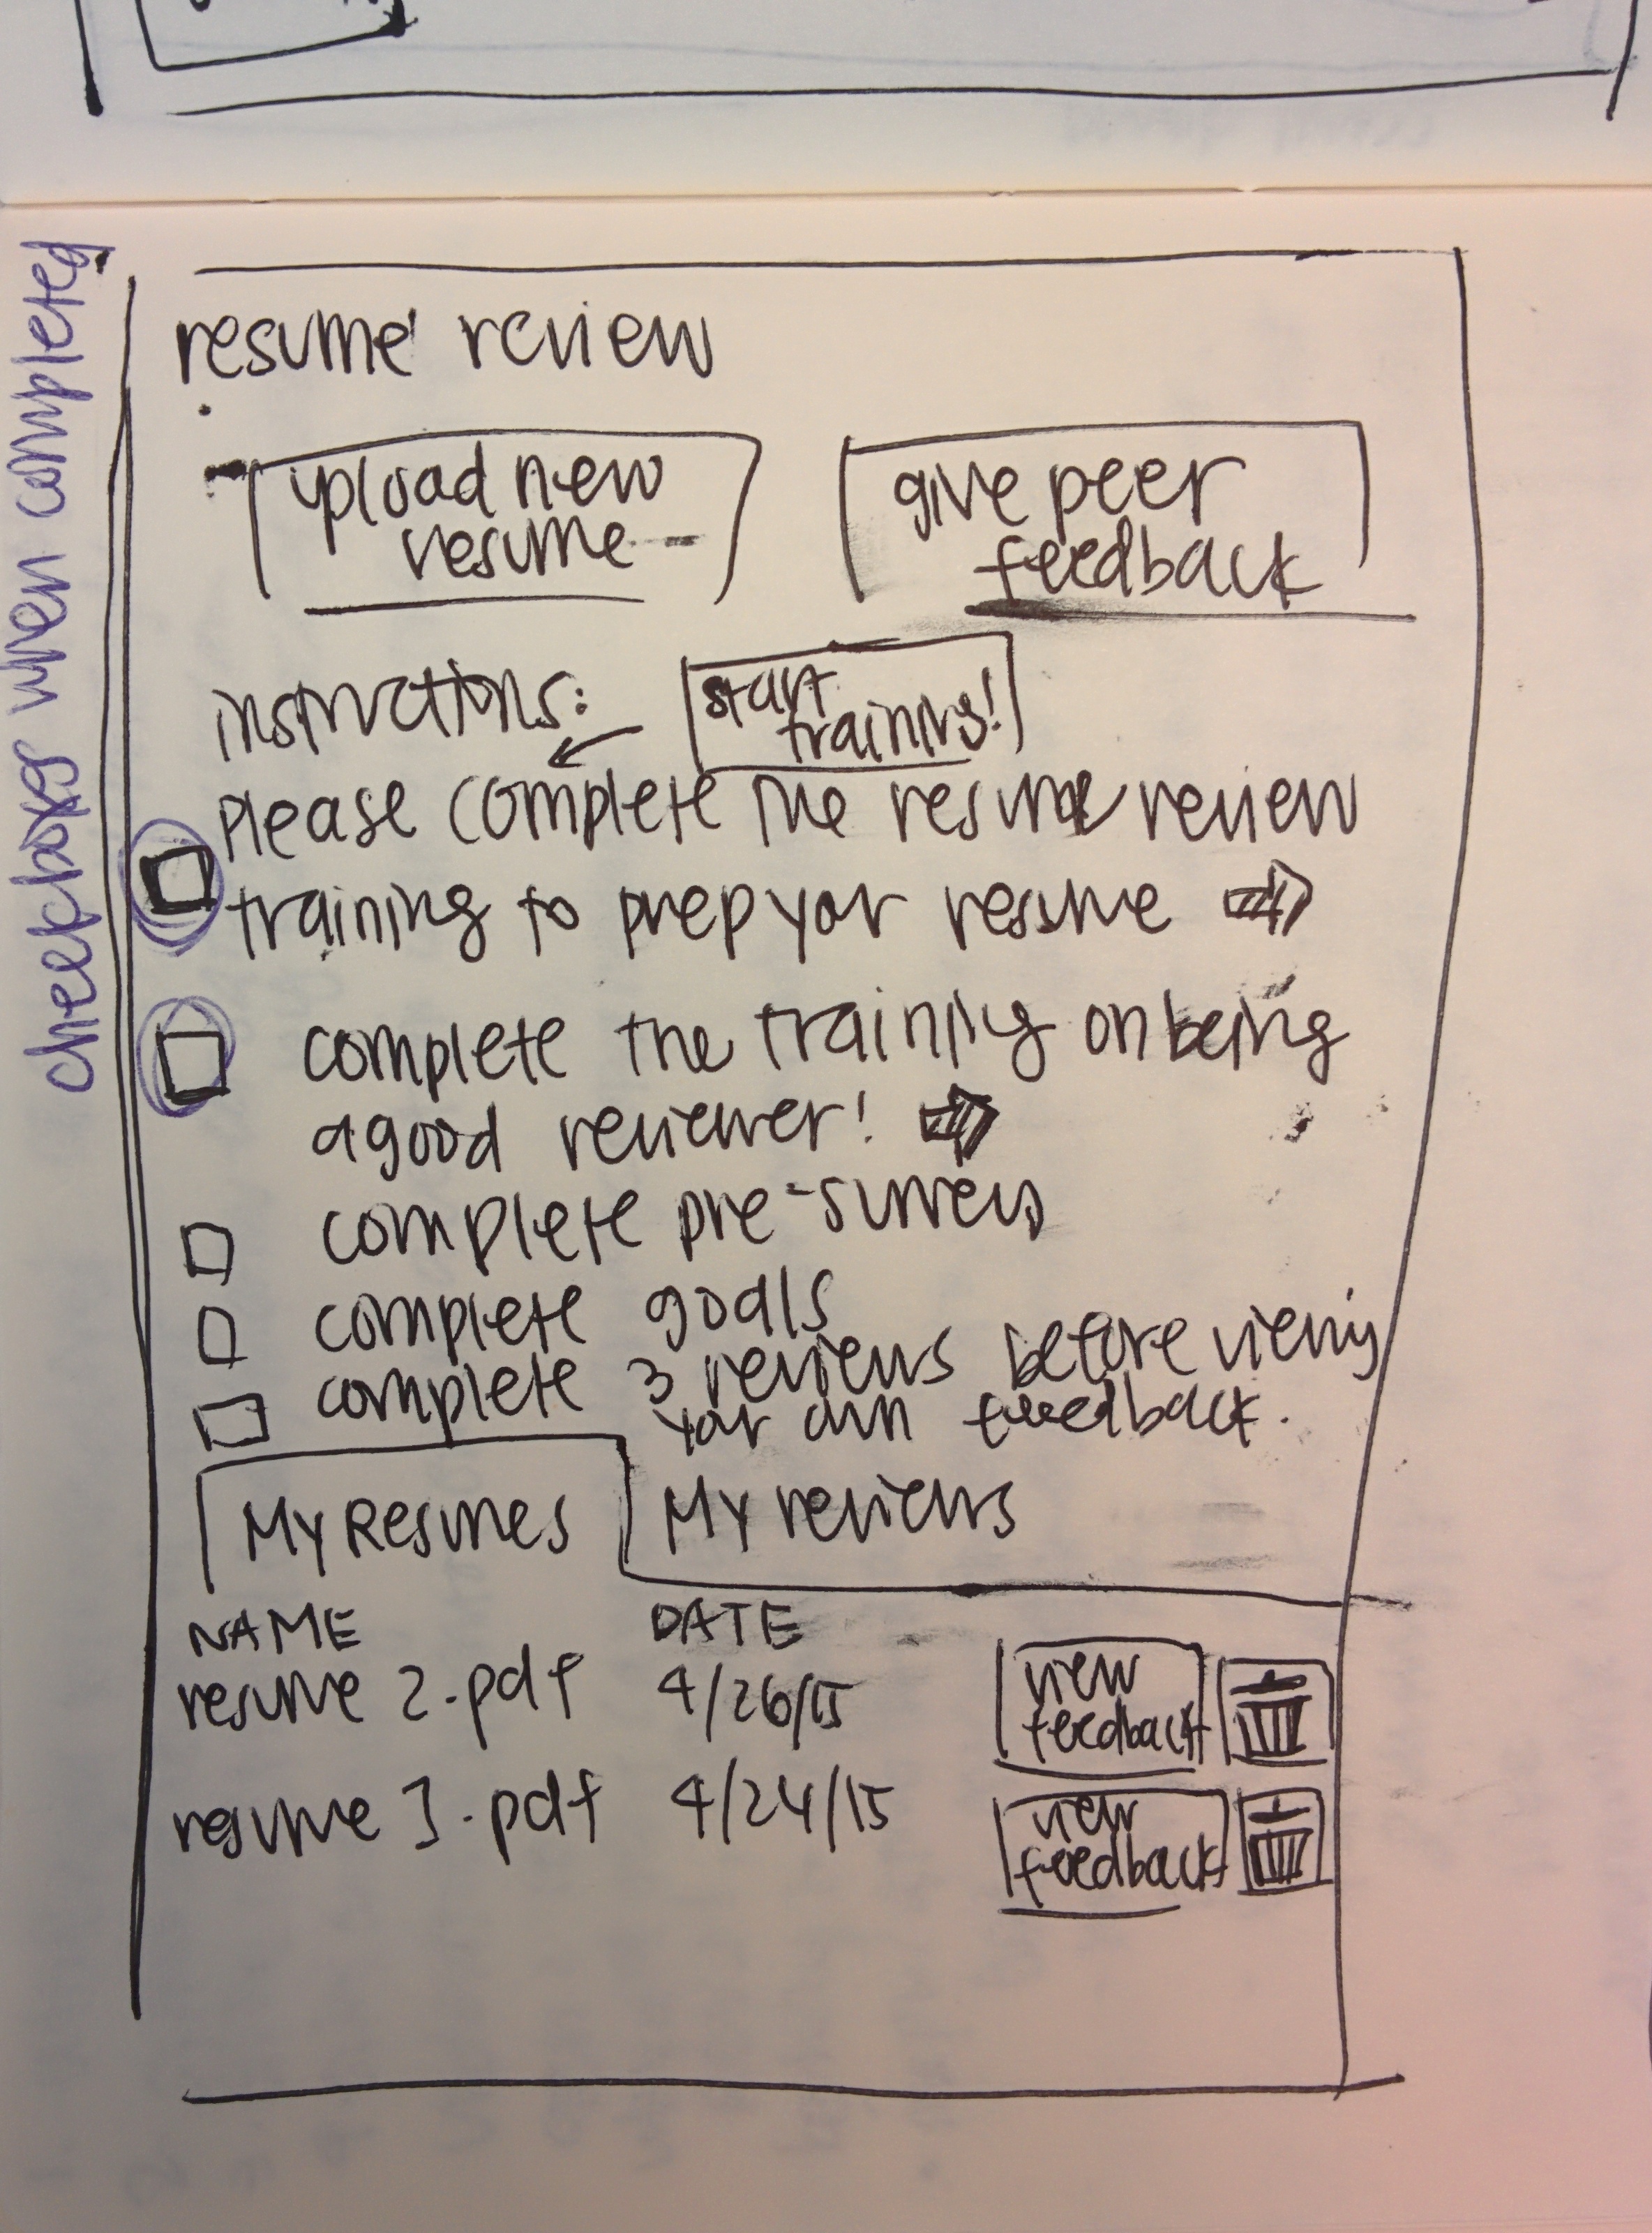 checkboxes when completed
resume review
upload new
resume
give peer
feedback
instructions:
start
training!
please complete the resume review
training to prep your resume
complete the training on being
a good reviewer!
complete pre-survey
complete goals
complete 3 reviews before viewing
your own feedback.
My Resumes
My reviews
NAME DATE
resume 2.pdf 4/26/15
view
feedback
resume 1.pdf 4/24/15
view
feedback